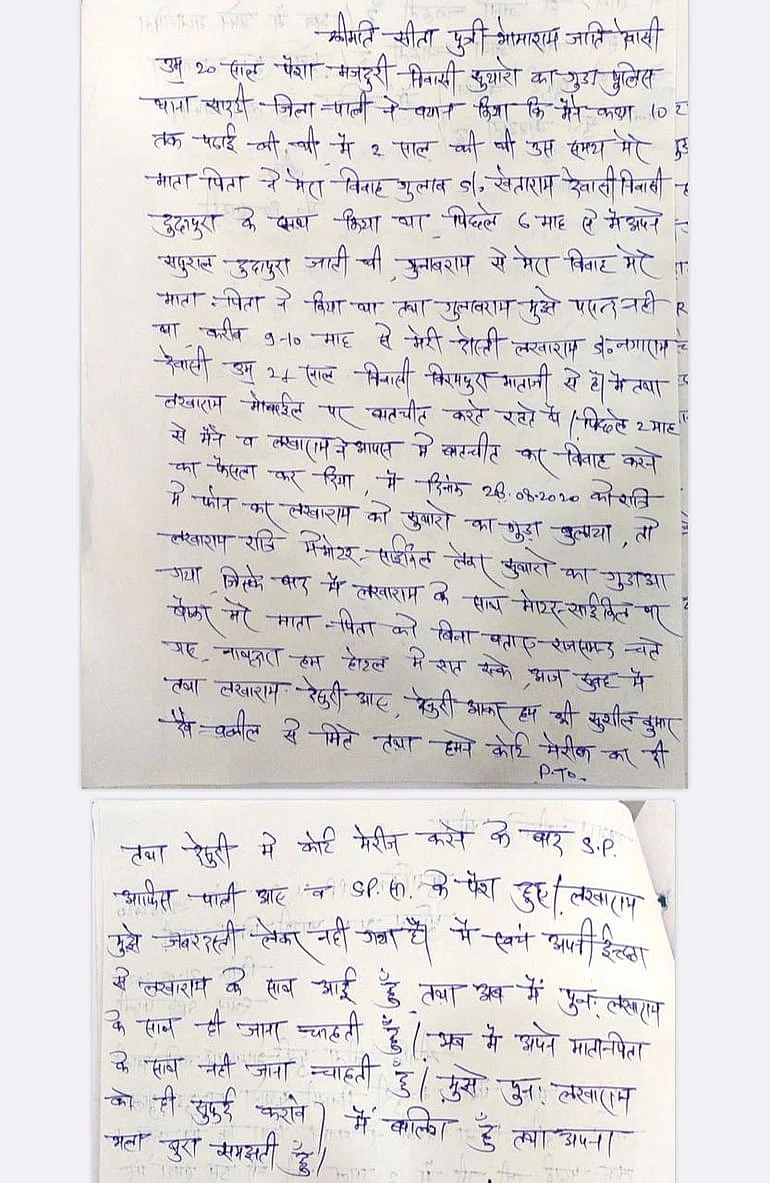 श्रीमति सीता पुत्री भोमाराम जाति देवासी
उम्र 20 साल पेशा मजदुरी निवासी सुथारो का गुडा पुलिस
थाना सादडी जिला पाली ने बयान किया कि मैने कक्षा 10
तक पढाई की थी मै 2 साल की थी उस समय मेरे
माता पिता ने मेरा विवाह गुलाब S/o खेताराम देवासी निवासी
दुदापुरा के साथ किया था पिछले 6 माह से मै अपने
ससुराल दुदापुरा जाती थी, गुलाबराम से मेरा विवाह मेरे
माता-पिता ने किया था तथा गुलाबराम मुझे पसन्द नही
था, करीब 9-10 माह से मेरी दोस्ती लखाराम S/o नगाराम
देवासी उम्र 21 साल निवासी विरमपुरा माताजी से है। मै तथा
लखाराम मोबाईल पर बातचीत करते रहते थे। पिछले 2 माह
से मैने व लखाराम ने आपस मे बातचीत कर विवाह करने
का फैसला कर दिया, मै दिनांक 28.08.2020 को रात्रि
मे फोन कर लखाराम को सुथारो का गुडा बुलाया, तो
लखाराम रात्रि मे मोटर-साईकिल लेकर सुथारो का गुडा आ
गया, जिसके बाद मै लखाराम के साथ मोटर-साईकिल पर
बैठकर मेरे माता-पिता को बिना बताए राजसमन्द चले
गए, हम होटल मे रात रुके, आज सुबह मै
तथा लखाराम देसुरी आए, देसुरी आकर हम श्री सुशील कुमार
वकील से मिले तथा हमने कोर्ट मेरीज कर दी
P.To.
तथा देसुरी मे कोर्ट मेरीज करने के बाद S.P.
आफिस पाली आए व S.P. सा. के पेश हुए। लखाराम
मुझे जबरदस्ती लेकर नही गया है। मै स्वयं अपनी ईच्छा
से लखाराम के साथ आई हूँ तथा अब मैं पुन: लखाराम
के साथ ही जाना चाहती हूँ। अब मै अपने माता-पिता
के साथ नही जाना चाहती हूँ। मुझे पुन: लखाराम
को ही सुपुर्द करावे। मैं बालिग हूँ तथा अपना
भला बुरा समझती हूँ।